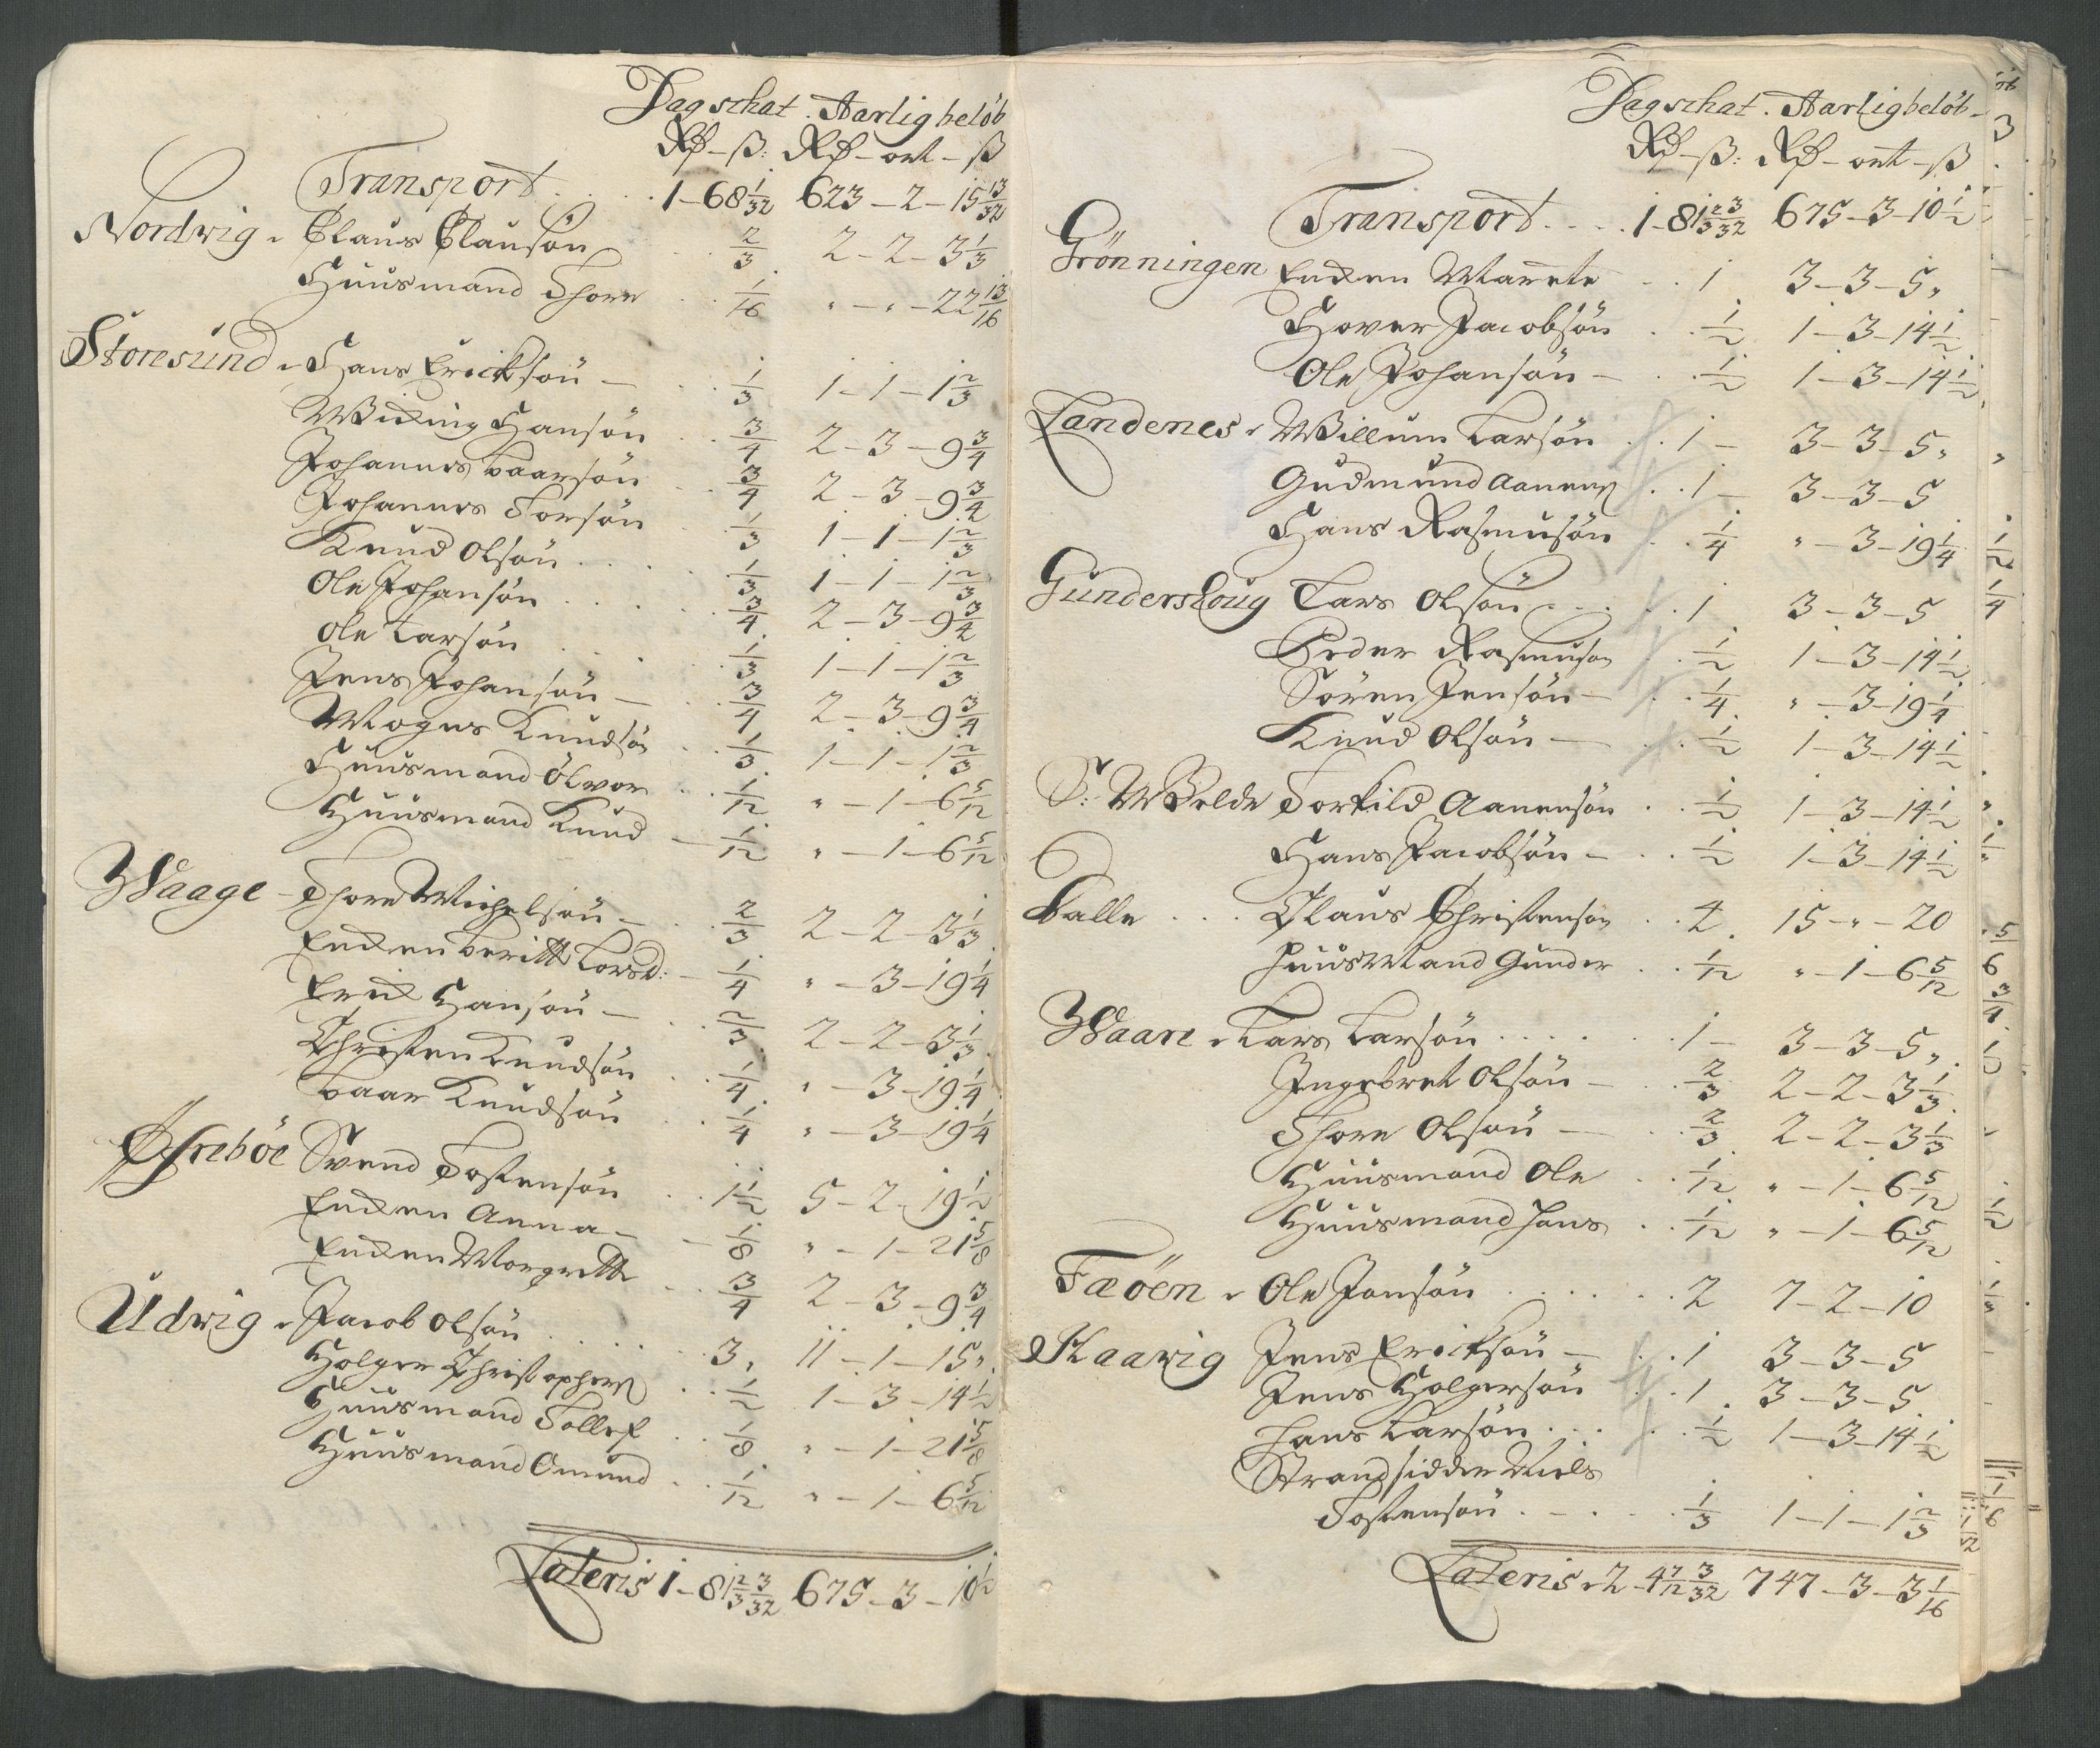 Dagschat. Aarlig beløb
Rd – ß: Rd – ort – ß
Transport . . . 1 – 68 1/32 623 – 2 – 15 13/32
Nordvig – Claus Clausøn . . 2/3 2 – 2 – 3 1/3
Huusmand Thore . . 1/16 " – " – 22 13/16
Storesund – Hans Ericksøn – . . 1/3 1 – 1 – 1 2/3
Wiking Hansøn . . 3/4 2 – 3 – 9 3/4
Johannes Baarsøn . . 3/4 2 – 3 – 9 3/4
Johannes Torsøn . . 1/3 1 – 1 – 1 2/3
Knud Olsøn . . . . 1/3 1 – 1 – 1 2/3
Ole Johansøn . . . . 3/4 2 – 3 – 9 3/4
Ole Larsøn . . . . 1/3 1 – 1 – 1 2/3
Jens Johansøn – . . 3/4 2 – 3 – 9 3/4
Mogns Knudsøn . . 1/3 1 – 1 – 1 2/3
Huusmand Olvor . . 1/12 " – 1 – 6 5/12
Huusmand Knud – 1/12 " – 1 – 6 5/12
Waage – Thore Michelsøn – . . 2/3 2 – 2 – 3 1/3
Encken Beritt Torsd: – 1/4 " – 3 – 19 1/4
Erick Hansøn – . . 2/3 2 – 2 – 3 1/3
Christen Knudsøn . . 1/4 " – 3 – 19 1/4
Baar Knudsøn . . 1/4 " – 3 – 19 1/4
Øfrebøe Svend Tostensøn . . 1 1/2 5 – 2 – 19 1/2
Encken Anna – – 1/8 " – 1 – 21 5/8
Encken Margrette . . 3/4 2 – 3 – 9 3/4
Udvig – Jacob Olsøn . . . . 3 " 11 – 1 – 15 "
Holger Christophers . . 1/2 1 – 3 – 14 1/2
Huusmand Tollef . . 1/8 " – 1 – 21 5/8
Huusmand Omund . . 1/12 " – 1 – 6 5/12
Lateris 1 – 81 2/3 3/32 675 – 3 – 10 1/2
Dagschat. Aarlig beløb –
Rd – ß: Rd – ort – ß
Transport . . . . 1 – 81 2/3 3/32 675 – 3 – 10 1/2
Grønningen Encken Marrete . . 1 3 – 3 – 5 "
Hover Jacobsøn . . 1/2 1 – 3 – 14 1/2
Ole Johansøn – . . 1/2 1 – 3 – 14 1/2
Landenes – Willum Larsøn . . 1 – 3 – 3 – 5 "
Gudmund Aanens . . 1 – 3 – 3 – 5
Hans Rasmusøn . . 1/4 " – 3 – 19 1/4
Gundershoug Lars Olsøn . . . . 1 3 – 3 – 5
Peder Rasmusøn . . 1/2 1 – 3 – 14 1/2
Søren Jensøn – . . 1/4 " – 3 – 19 1/4
Knud Olsøn – . . 1/2 1 – 3 – 14 1/2
S: Welde Torkild Aanensøn . . 1/2 1 – 3 – 14 1/2
Hans Jacobsøn – . . 1/2 1 – 3 – 14 1/2
Kalle . . . Claus Christensøn . . 4 15 – " – 20
Huusmand Gunder . . 1/12 " – 1 – 6 5/12
Waare – Lars Larsøn . . . . 1 – 3 – 3 – 5 "
Ingebret Olsøn – . . 2/3 2 – 2 – 3 1/3
Thore Olsøn – . . 2/3 2 – 2 – 3 1/3
Huusmand Ole . . 1/12 " – 1 – 6 5/12
Huusmand Hans . . 1/12 " – 1 – 6 5/12
Fæøen – Ole Jonsøn . . . . 2 7 – 2 – 10
Haavig Jens Ericksøn – . . 1 3 – 3 – 5
Jens Holgersøn . . 1 3 – 3 – 5
Hans Larsøn . . . 1/2 1 – 3 – 14 1/2
Strandsidder Niels
Tostensøn . . . . 1/3 1 – 1 – 1 2/3
Lateris – 2 – 4 7/12 3/32 747 – 3 – 3 1/16